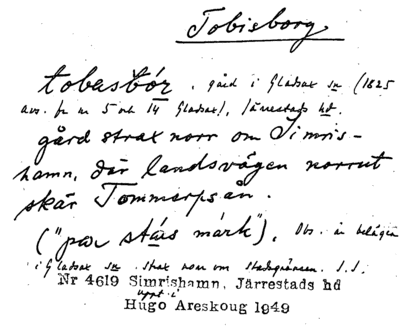 Tobisborg
tobasbór, gård i Gladsax sn (1825
avs. fr nr 5 och 14 Gladsax), Järrestads hd.
gård strax norr om Simris-
hamn, där landsvägen norrut
skär Tommarpsån.
("par stáis márk"), Obs. är belägen
i Gladsax sn strax norr om stadsgränsen. S.S.
Nr 4619 Simrishamn, Järrestads hd
Uppt i
Hugo Areskoug 1949